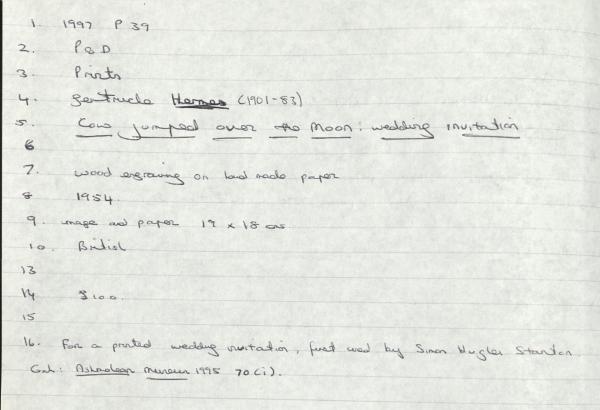 1. 1997 P 39
2. P & D
3. Prints
4. Gertrude Hermes (1901-83)
5. Cow jumped over the Moon: wedding invitation
6
7. wood engraving on hand made paper
8 1954.
9. image and paper 19 x 18 cms
10. British
13
14 $100.
15
16. For a printed wedding invitation, first used by Simon Hughes Stanton.
Cat: Ashmolean Museum 1995 70(i).